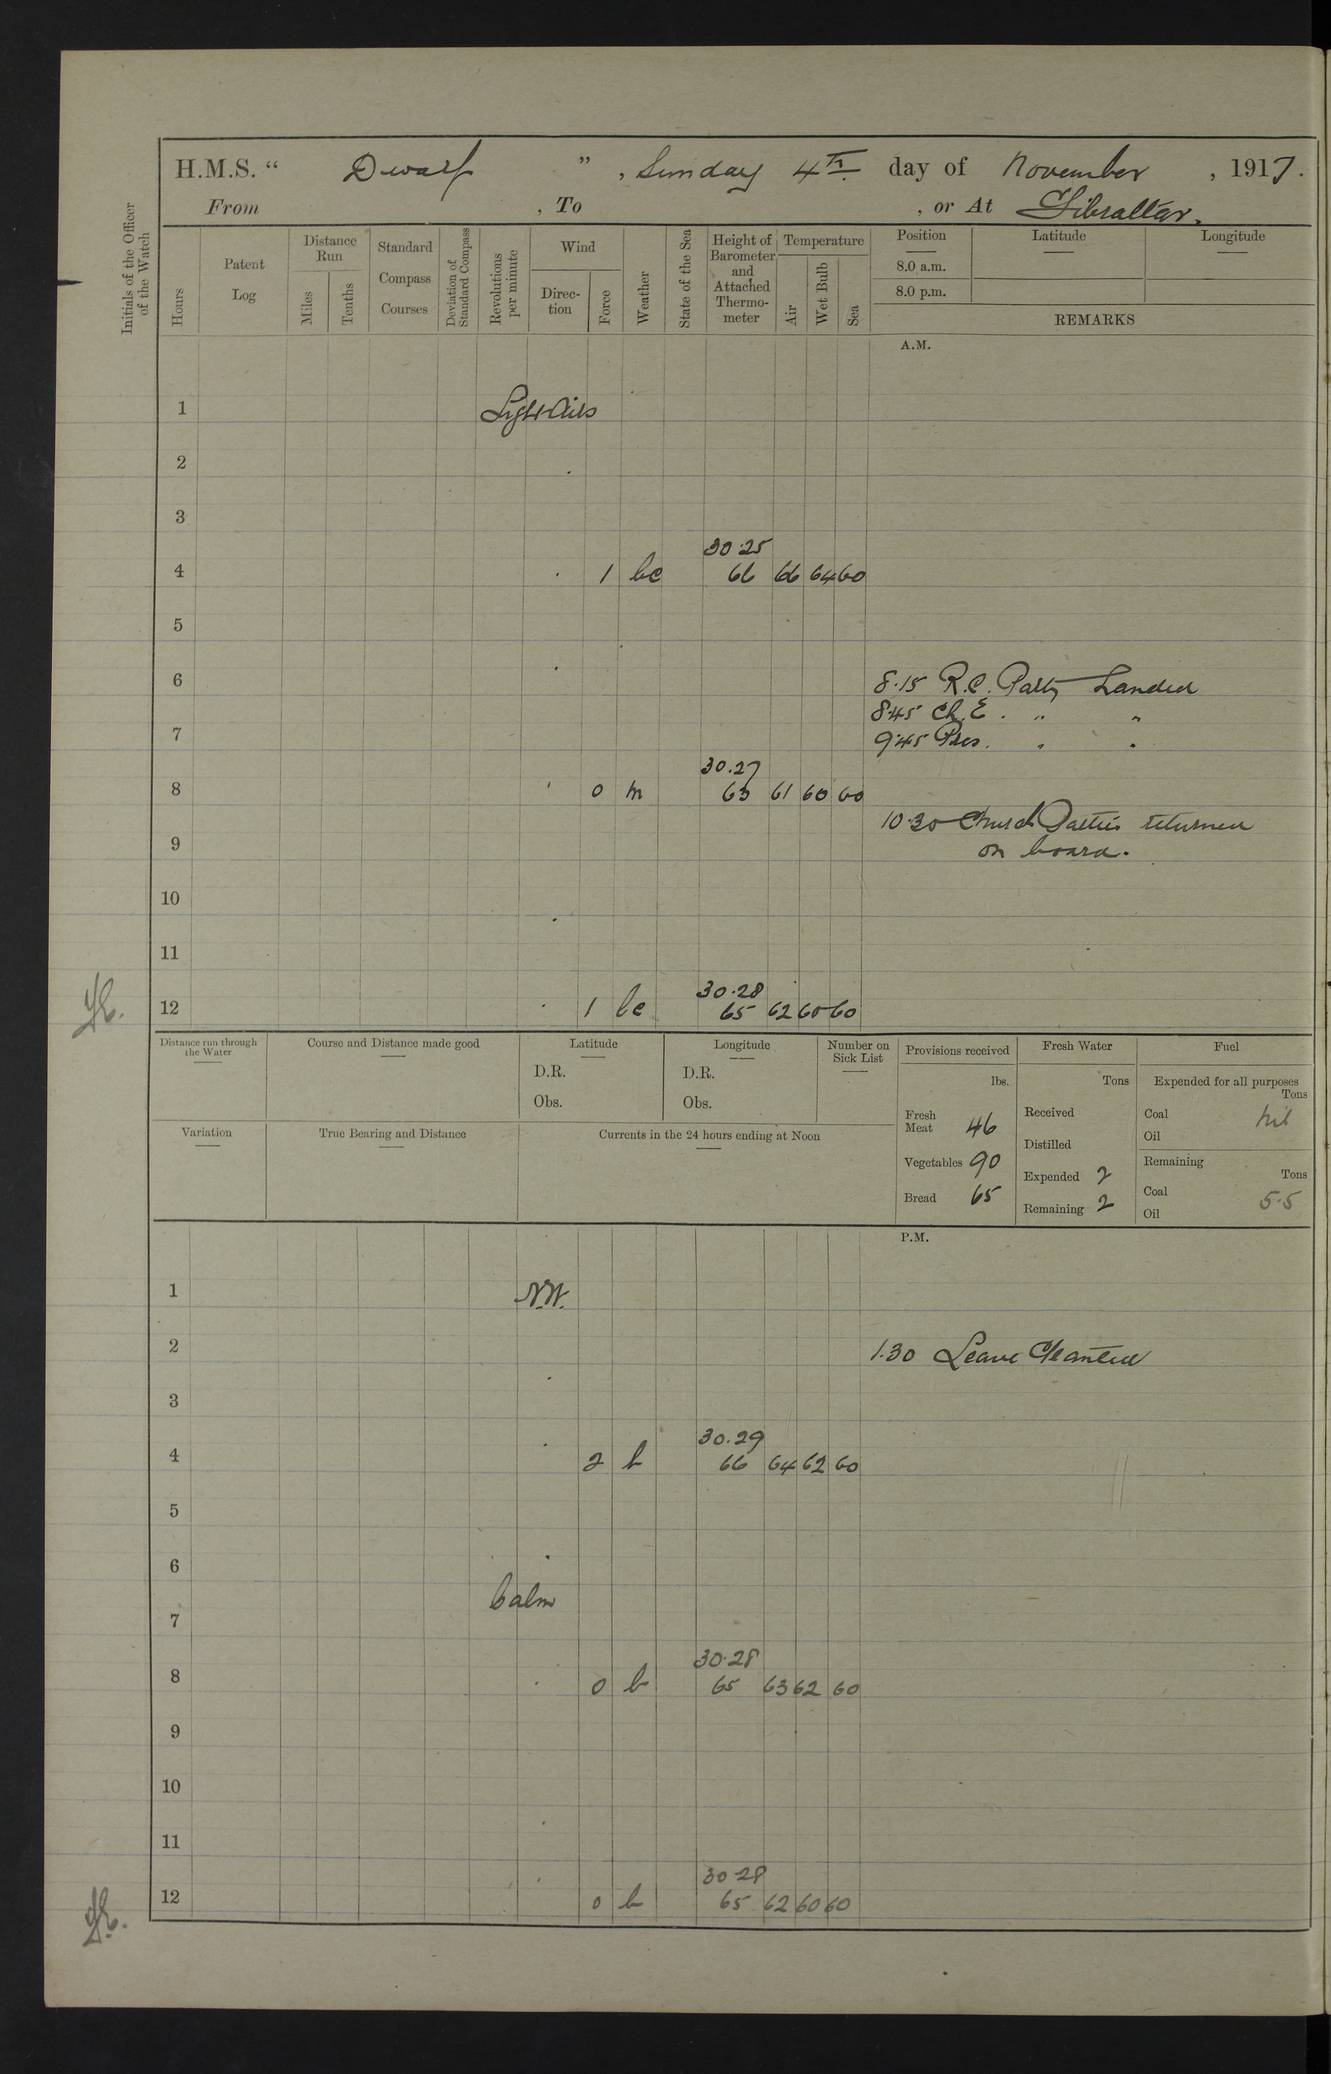 H.M.S. “ Dwarf ” , Sunday 4th day of November , 1917.
From , To , or At Gibraltar.
Initials of the Officer of the Watch
Hours
Patent Log
Distance Run
Miles
Tenths
Standard Compass Courses
Deviation of Standard Compass
Revolutions per minute
Wind
Direc-tion
Force
Weather
State of the Sea
Height of Barometer and Attached Thermo-meter
Temperature
Air
Wet Bulb
Sea
Position
8.0 a.m.
8.0 p.m.
Latitude
Longitude
REMARKS
A.M.
1 Light Airs
2
3
30.25
4 1 bc 66 66 64 60
5
6 8.15 R.C. Party Landed
8.45 Ch. E. " "
7 9.45 Pres. " "
30.27
8 0 m 63 61 60 60
10.30 Church Parties returned
9 on board.
10
11
30.28
12 1 bc 65 62 60 60
Distance run through the Water
Course and Distance made good
Latitude
D.R.
Obs.
Longitude
D.R.
Obs.
Number on Sick List
Variation
True Bearing and Distance
Currents in the 24 hours ending at Noon
Provisions received
lbs.
Fresh Meat 46
Vegetables 90
Bread 65
Fresh Water
Tons
Received
Distilled
Expended 2
Remaining 2
Fuel
Expended for all purposes
Tons
Coal Nil
Oil
Remaining
Tons
Coal 5.5
Oil
P.M.
1 N.W.
2 1.30 Leave Granted
3
30.29
4 2 b 66 64 62 60
5
6
Calm
7
30.28
8 0 b 65 63 62 60
9
10
11
30.28
12 0 b 65 62 60 60